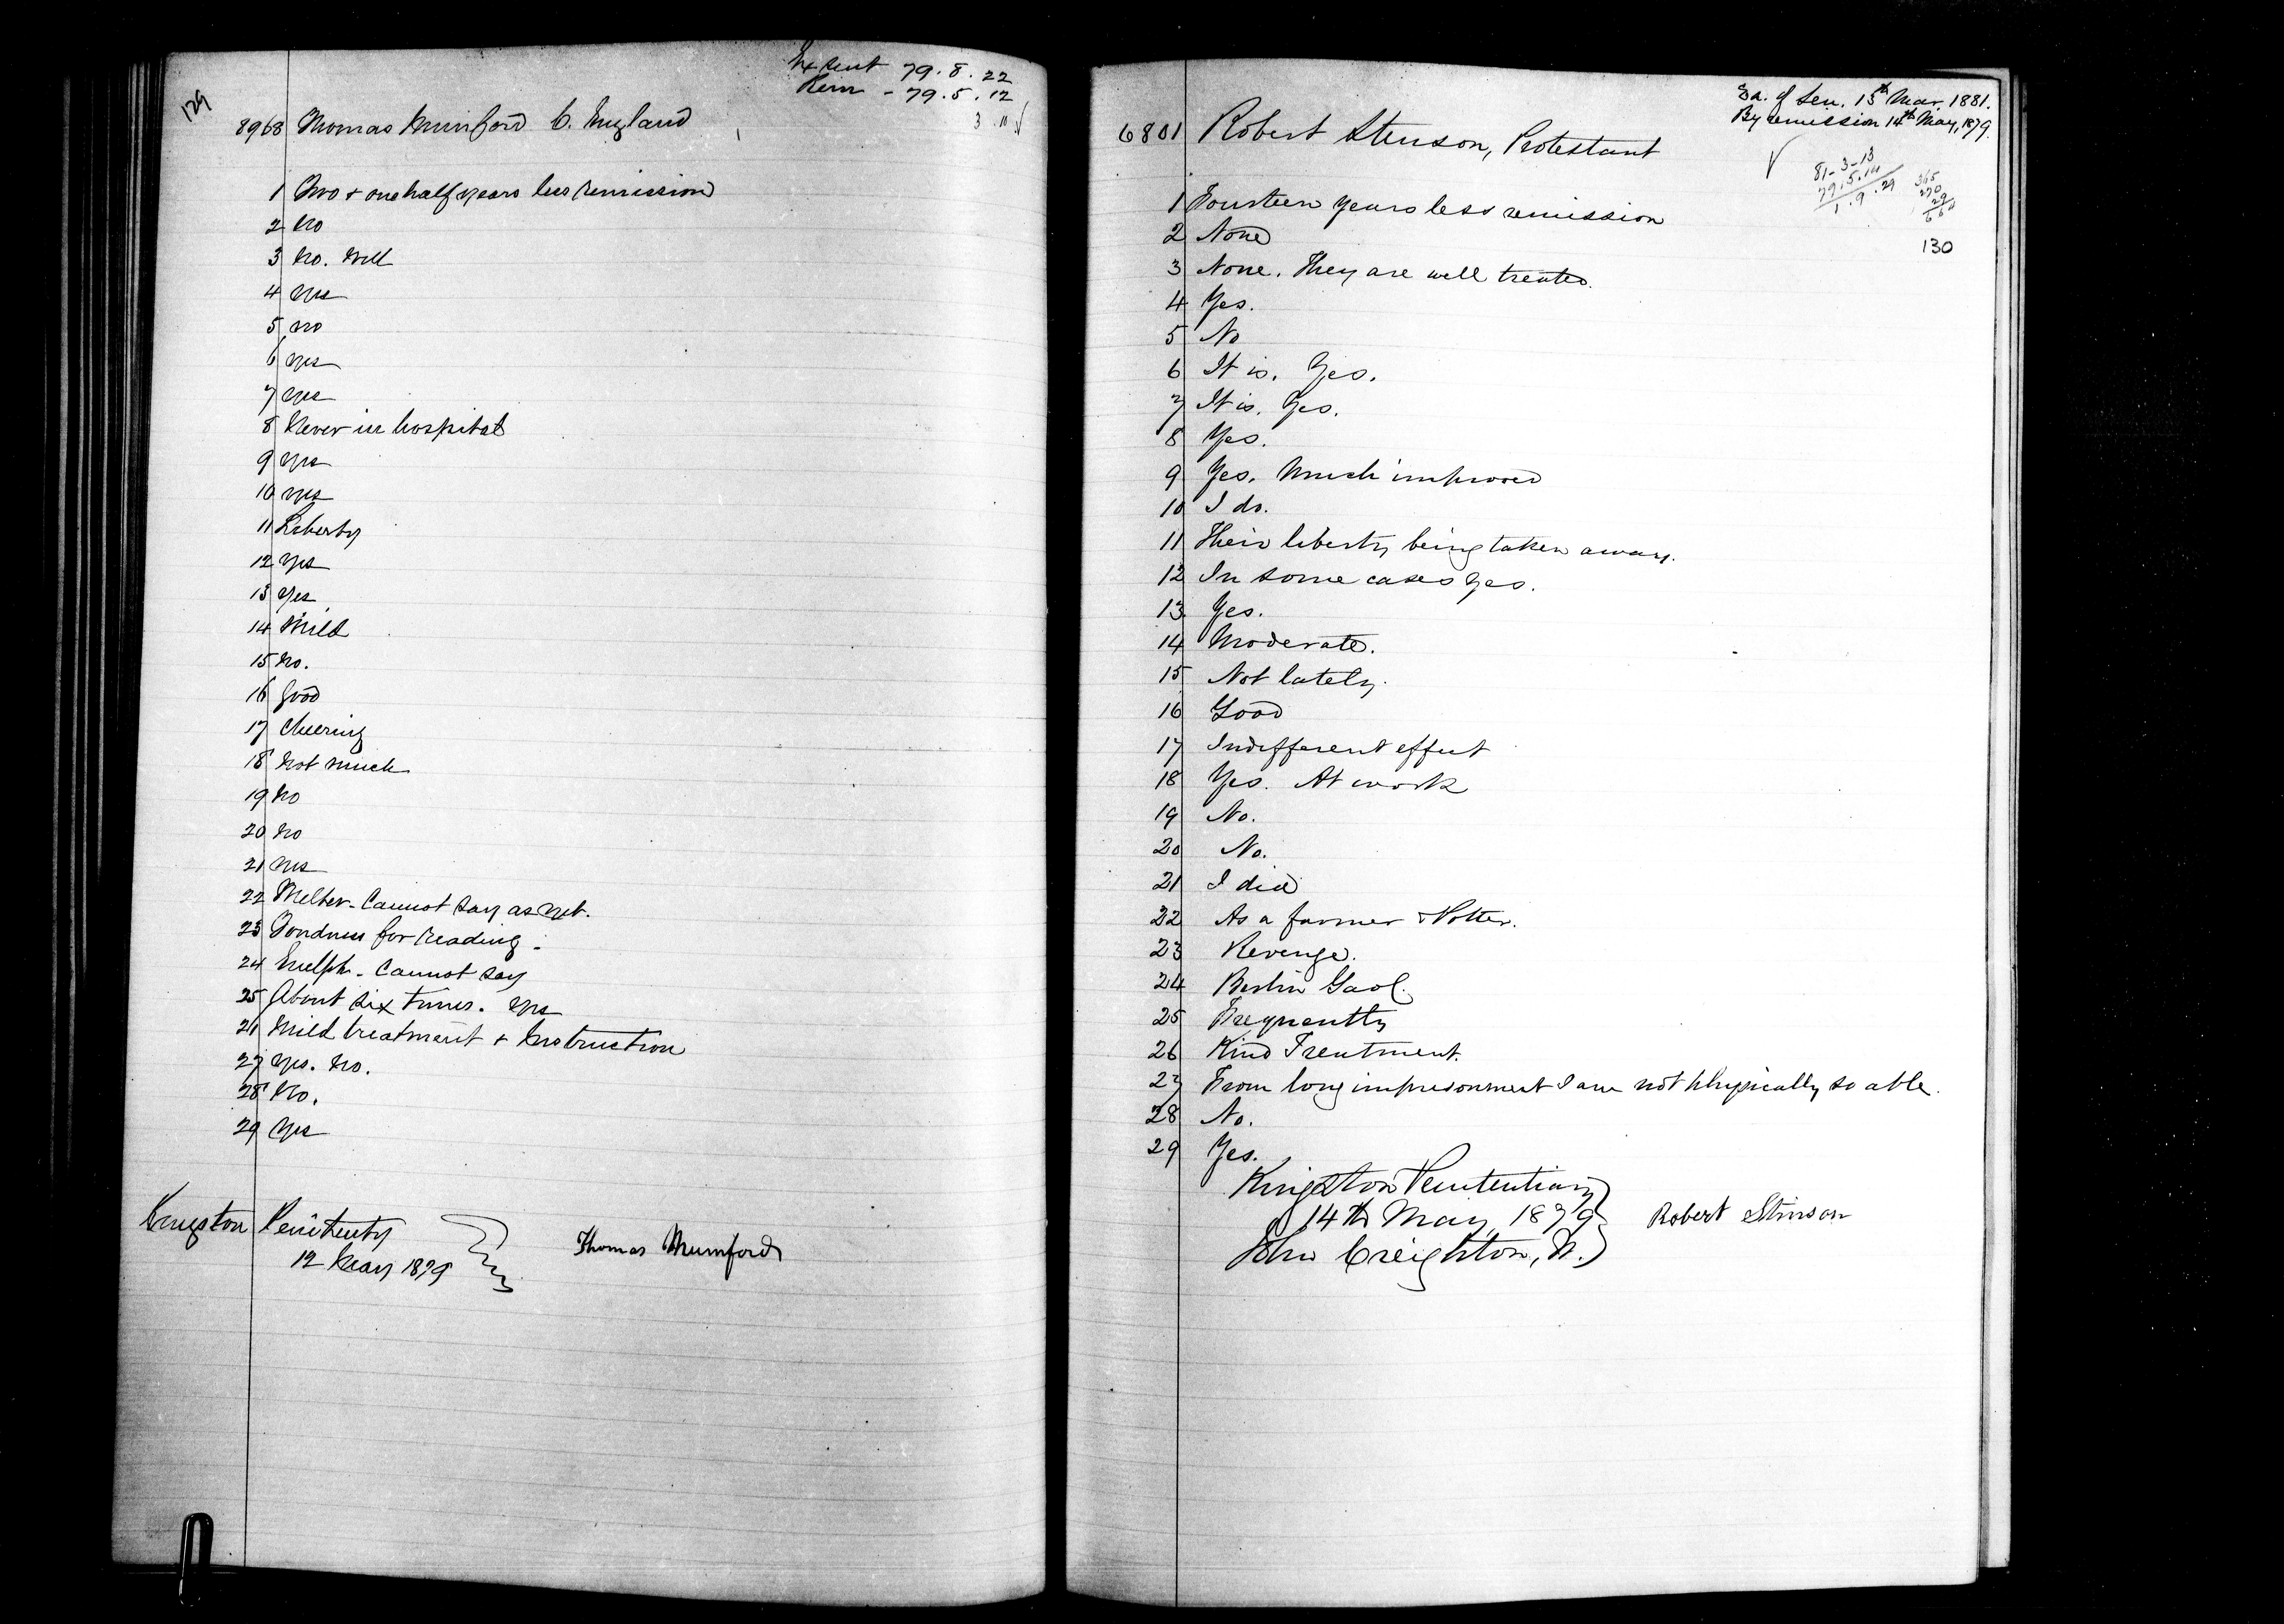 129
Ex Sent 79. 8. 22
Rem - 79. 5. 12
3 . 10
8968 Thomas Mumford C. England
1 Two + one half years less remission
2 No
3 No. Well
4 Yes
5 No
6 Yes
7 Yes
8 Never in hospital
9 Yes
10 Yes
11 Liberty
12 Yes
13 Yes
14 Mild
15 No.
16 Good
17 Cheering
18 Not much
19 No
20 No
21 Yes
22 Melter - Cannot say as yet.
23 Fondness for reading -
24 Guelph - Cannot say
25 About six times. Yes
26 Mild treatment + Instruction
27 Yes. No.
28 No.
29 Yes
Kingston Penitenty
12 May 1879
Thomas Mumford
Ex. of Sen. 13th Mar. 1881.
By remission 14th May, 1879.
6801 Robert Stenson, Protestant
81-3-13
79.5.14
1.9.29
365
270
29
664
130
1 Fourteen years less remission
2 None
3 None. They are well treated.
4 Yes.
5 No
6 It is. Yes.
7 It is. Yes.
8 Yes.
9 Yes. Much improved
10 I do.
11 Their liberty being taken away.
12 In some cases yes.
13 Yes.
14 Moderate.
15 Not lately.
16 Good
17 Indifferent effect
18 Yes. At work
19 No.
20 No.
21 I did
22 As a farmer & Potter.
23 Revenge.
24 Berlin Gaol.
25 Frequently
26 Kind Treatment.
27 From long imprisonment I am not physically so able.
28 No.
29 Yes.
Kingston Penitentiary
14th May, 1879
John Creighton, W.
Robert Stinson